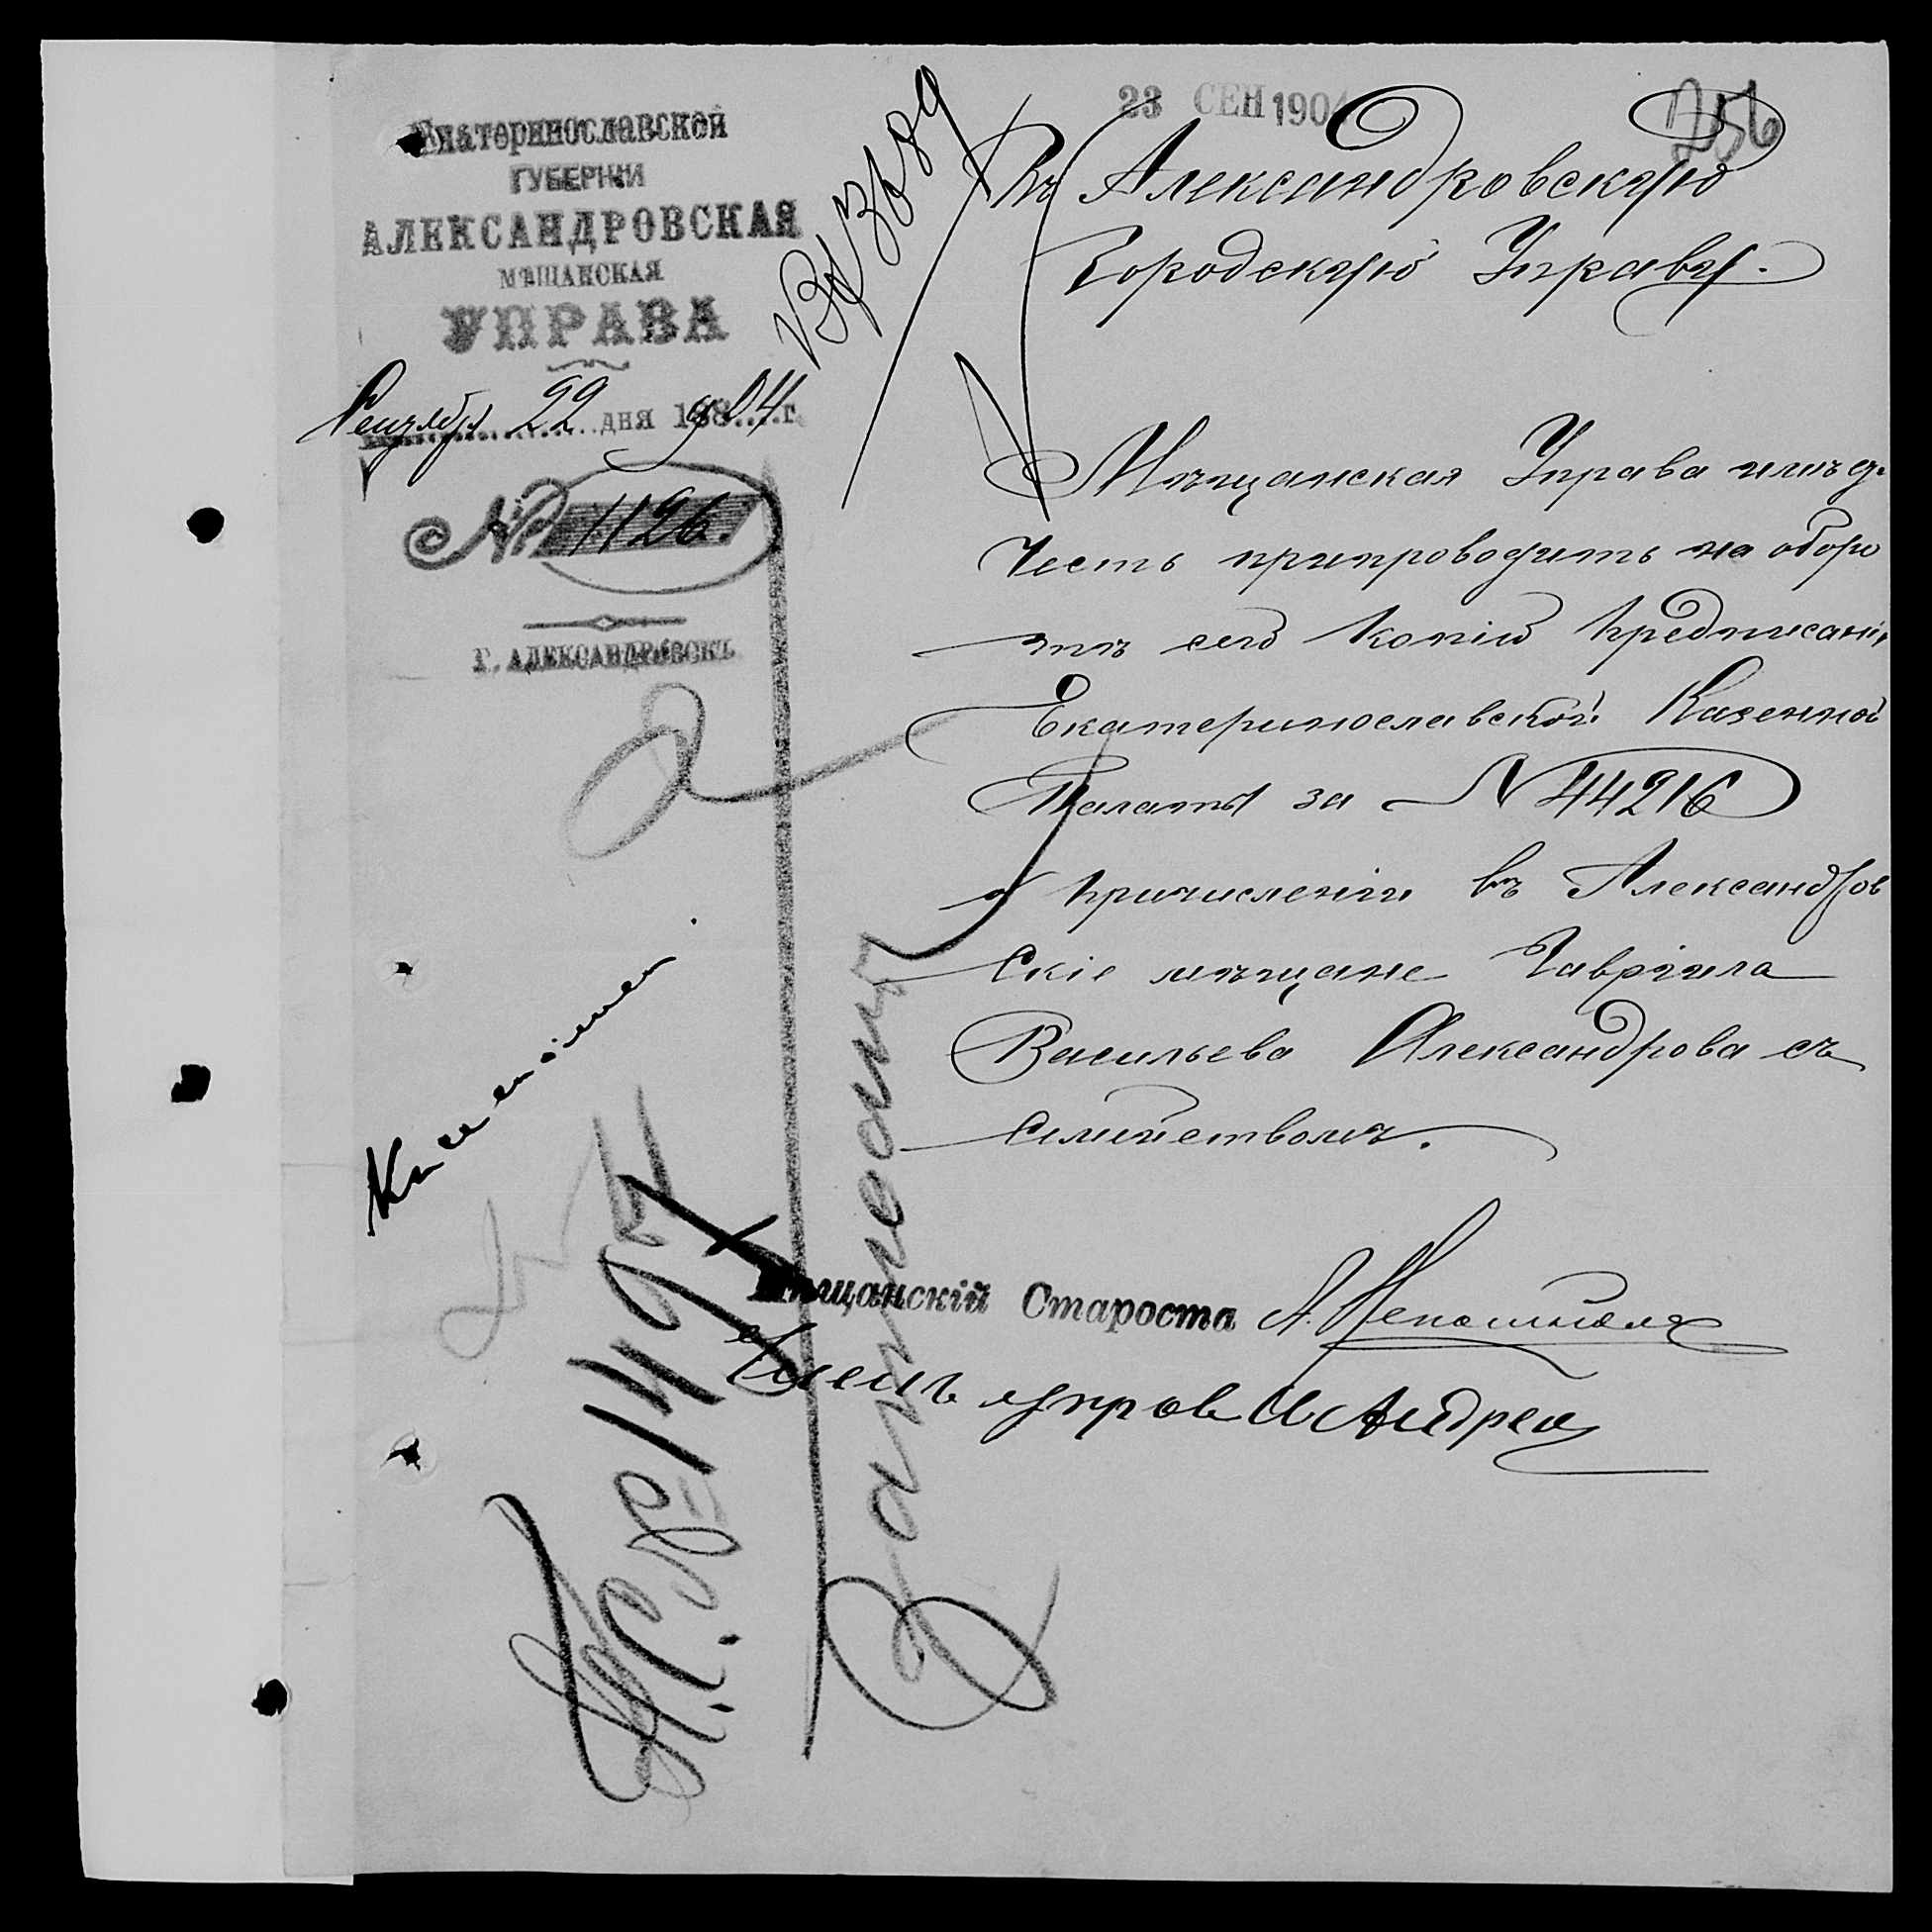 23 СЕН 1904
256
Екатеринославской
ГУБЕРНІИ
АЛЕКСАНДРОВСКАЯ
МѢЩАНСКАЯ
УПРАВА
Сентября 22 дня 1904 г.
№ 1126.
Г. АЛЕКСАНДРОВСКЪ
Вх 3609
Въ Александровскую
Городскую Управу.
Мѣщанская Управа имѣетъ
честь припроводить на оборо
тѣ сего копію предписанія
Екатеринославской Казенной
Палаты за № 44216
о причисленіи въ Александров
скіе мѣщане Гавріила
Васильева Александрова съ
семействомъ.
Мѣщанскій Староста
Членъ управ И Андрея